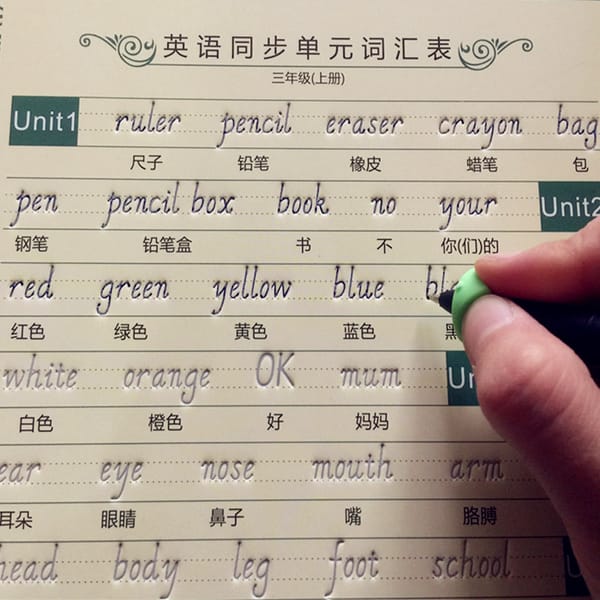 英语同步单元词汇表
三年级(上册)
Unit1 ruler pencil eraser crayon bag
尺子 铅笔 橡皮 蜡笔 包
pen pencil box book no your Unit2
钢笔 铅笔盒 书 不 你(们)的
red green yellow blue
红色 绿色 黄色 蓝色
white orange OK mum
白色 橙色 好 妈妈
ear eye nose mouth arm
耳朵 眼睛 鼻子 嘴 胳膊
head body leg foot school